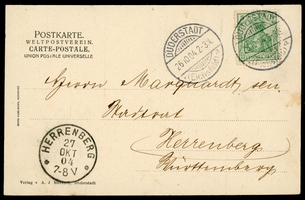 POSTKARTE.
WELTPOSTVEREIN.
CARTE-POSTALE.
UNION POSTALE UNIVERSELLE
DUDERSTADT
26.10.04.2-3N.
Herrn Marquardt sen.
Stadtrat
Herrenberg
Württemberg
HERRENBERG
27
OKT
04
7-8 V
Verlag v. A. J.